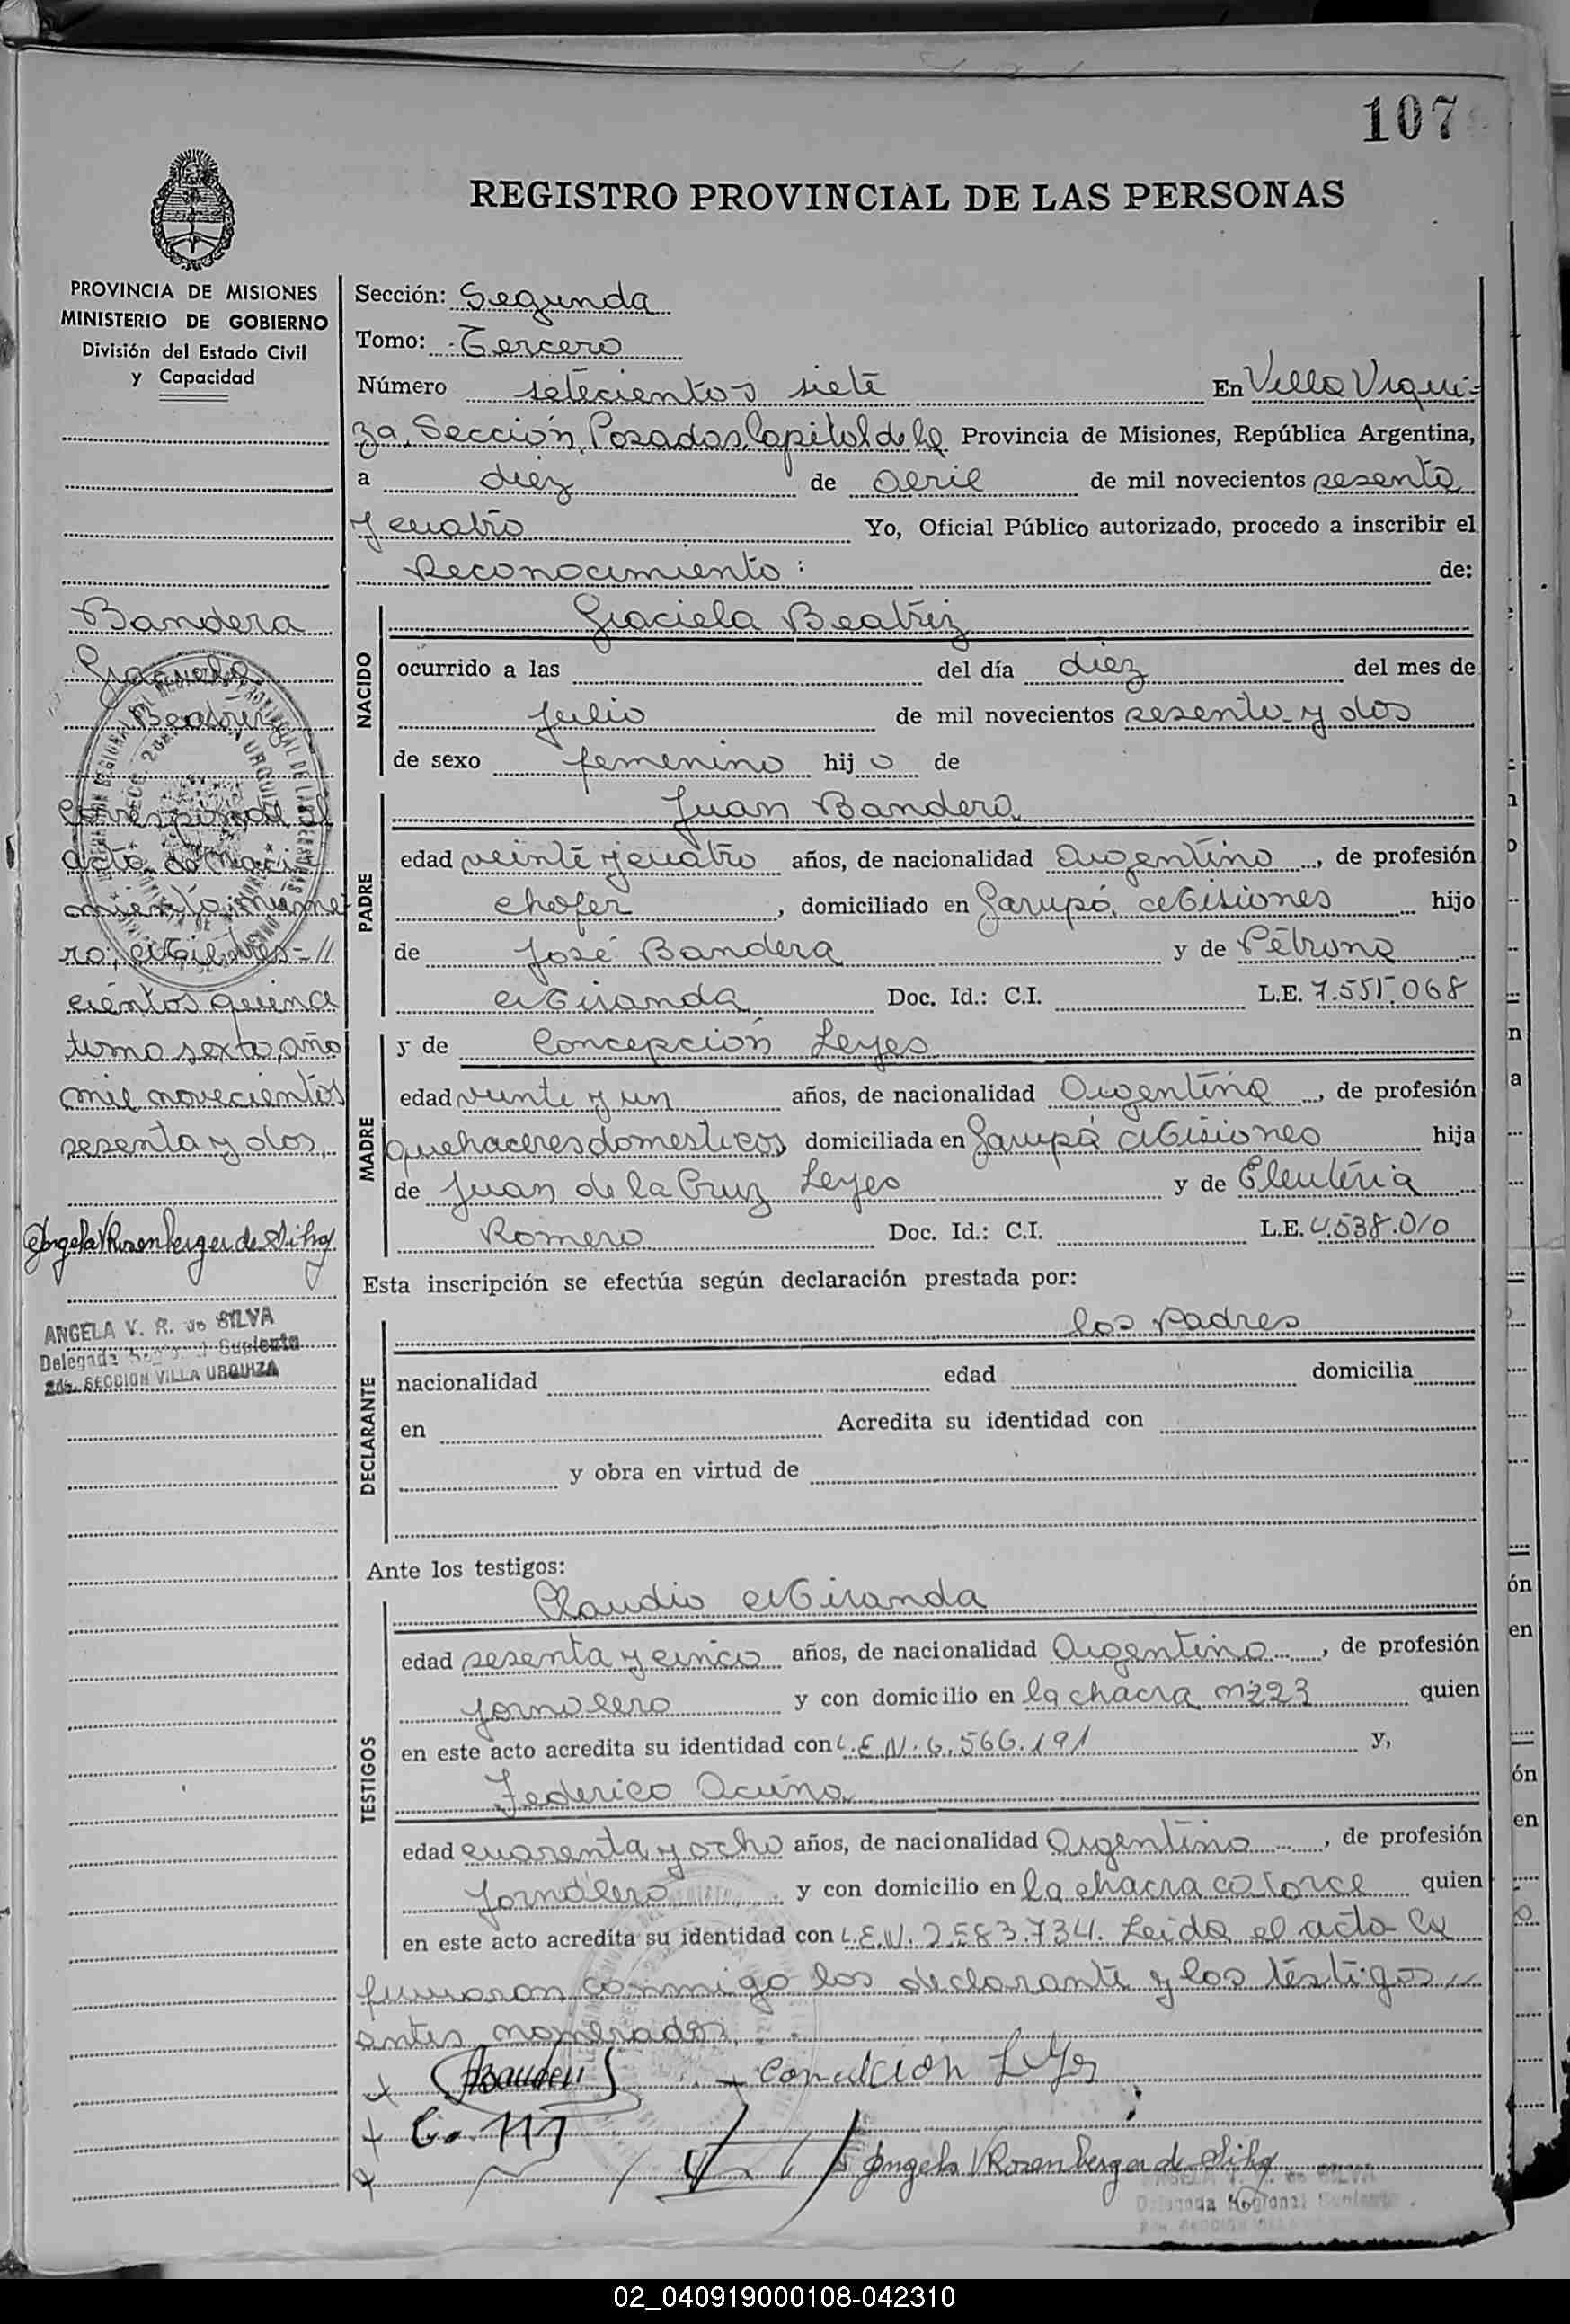 107
REGISTRO PROVINCIAL DE LAS PERSONAS
PROVINCIA DE MISIONES
MINISTERIO DE GOBIERNO
División del Estado Civil
y Capacidad
Bandera
Graciela
Beatriz
Corresponde al
acta de naci
miento, núme
ro, mil tres=//
cientos quince
tomo sexto, año
mil novecientos
sesenta y dos,
Angela V Rosenberger de Silva
ANGELA V. R. de SILVA
Delegada Regional Suplente
2da. SECCION VILLA URQUIZA
Sección: Segunda
Tomo: Tercero
Número setecientos siete En Villa Urqui=
za, Sección, Posadas, Capital de la Provincia de Misiones, República Argentina,
a diez de abril de mil novecientos sesenta
y cuatro Yo, Oficial Público autorizado, procedo a inscribir el
Reconocimiento: de:
NACIDO
Graciela Beatriz
ocurrido a las del día diez del mes de
julio de mil novecientos sesenta y dos
de sexo femenino hij a de
PADRE
Juan Bandera
edad veinte y cuatro años, de nacionalidad Argentino, de profesión
chofer, domiciliado en Garupá, Misiones hijo
de José Bandera y de Petrona
Miranda Doc. Id.: C.I. L.E. 7.551.068
MADRE
y de Concepción Leyes
edad veinte y un años, de nacionalidad Argentina, de profesión
quehaceres domesticos domiciliada en Garupá Misiones hija
de Juan de la Cruz Leyes y de Eleuteria
Romero Doc. Id.: C.I. L.E. 4.538.010
Esta inscripción se efectúa según declaración prestada por:
DECLARANTE
los Padres
nacionalidad edad domicilia
en Acredita su identidad con
y obra en virtud de
Ante los testigos:
TESTIGOS
Claudio Miranda
edad sesenta y cinco años, de nacionalidad Argentino, de profesión
jornalero y con domicilio en la chacra nº 23 quien
en este acto acredita su identidad con L.E.N. 6.566.191 y,
Federico Acuña
edad cuarenta y ocho años, de nacionalidad Argentino, de profesión
Jornalero y con domicilio en la chacra catorce quien
en este acto acredita su identidad con L.E.N. 2.583.734. Leída el acta la
firmaron conmigo los declarante y los testigos //
antes nomerados,
Concecion Leyes
C. M
Angela V Rosenberger de Silva
Delegada Regional Suplente
02_040919000108-042310